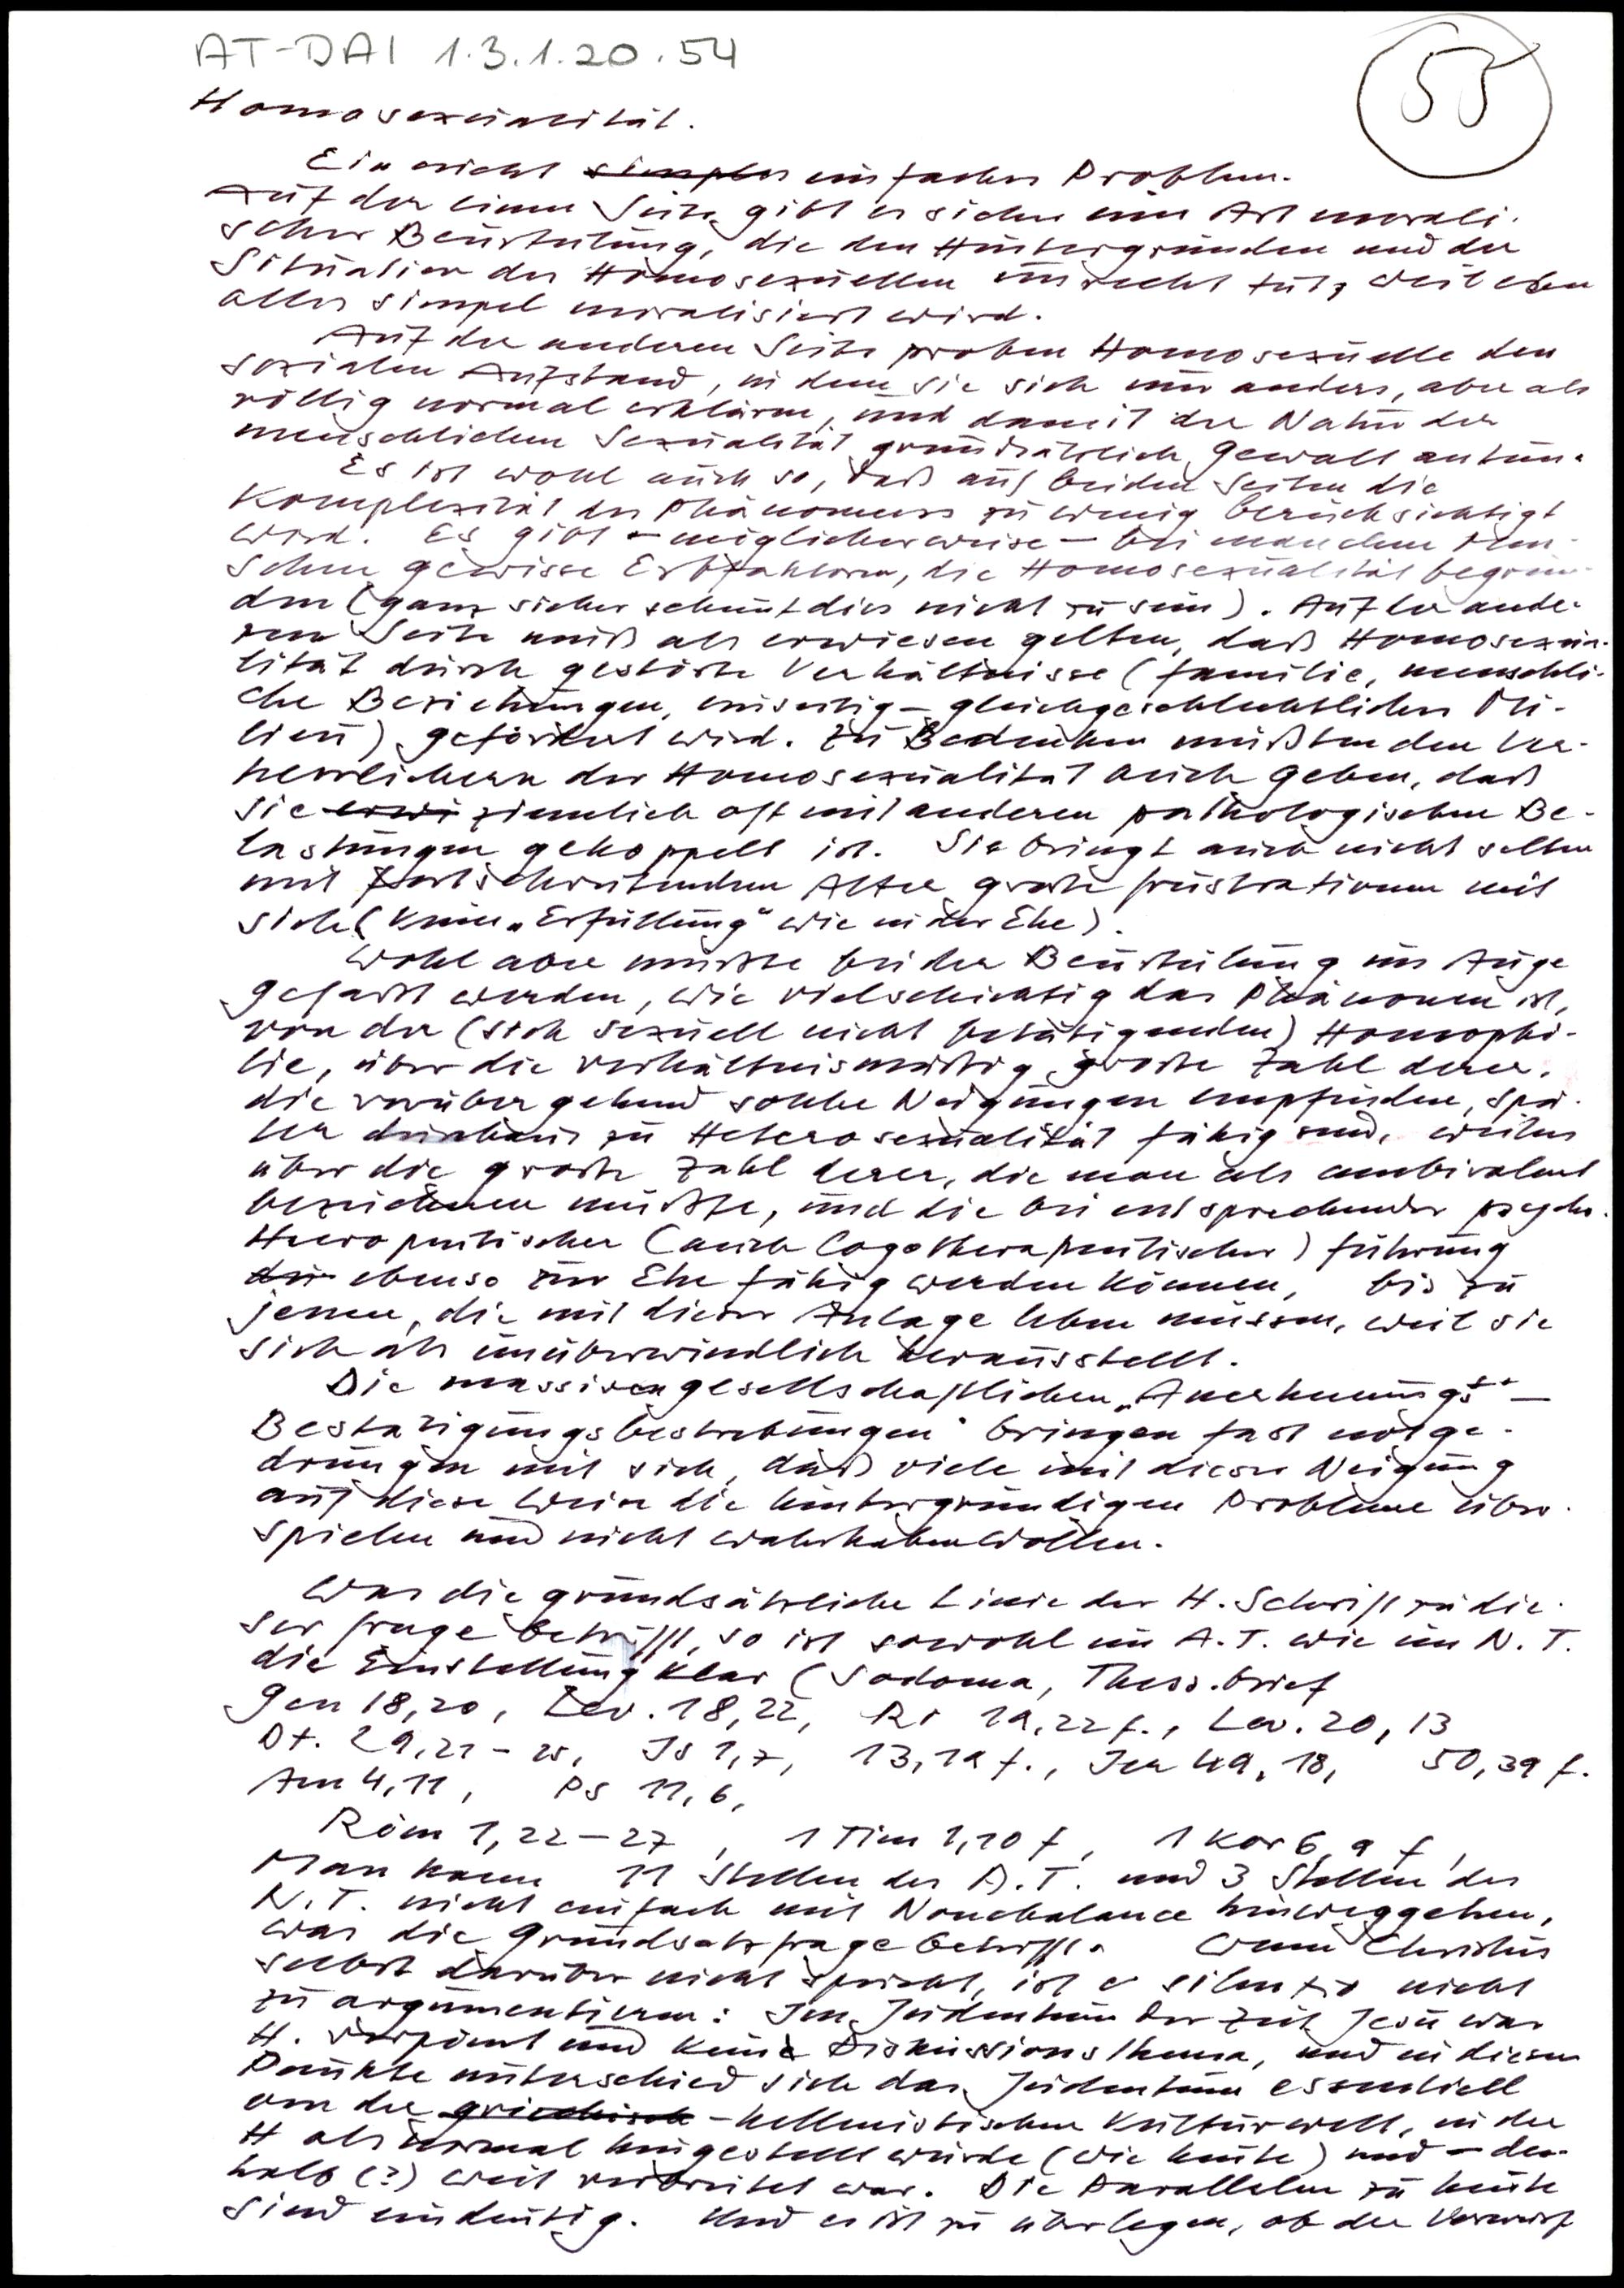 AT-DAI 1.3.1.20.54
55
Homosexualität.
Ein nicht simples einfaches Problem.
Auf der einen Seite gibt es sicher eine Art morali-
scher Beurteilung, die den Hintergründen und der
Situation der Homosexuellen unrecht tut, weil eben
alles simpel moralisiert wird.
Auf der anderen Seite proben Homosexuelle den
sozialen Aufstand, in dem sie sich nur anders, aber als
völlig normal erklären, und damit der Natur der
menschlichen Sexualität grundsätzlich Gewalt antun.
Es ist wohl auch so, daß auf beiden Seiten die
Komplexität des Phänomens zu wenig berücksichtigt
wird. Es gibt - möglicherweise - bei manchen Men-
schen gewisse Erbfaktoren, die Homosexualität begrün-
den (ganz sicher scheint dies nicht zu sein). Auf der ande-
ren Seite muß als erwiesen gelten, daß Homosexua-
lität durch gestörte Verhältnisse (Familie, menschli-
che Beziehungen, einseitig-gleichgeschlechtliches Mi-
lieu) gefördert wird. Zu Bedenken müßten den Ver-
herrlichern der Homosexualität auch geben, daß
sie erwi ziemlich oft mit anderen pathologischen Be-
lastungen gekoppelt ist. Sie bringt auch nicht selten
mit fortschreitendem Alter große Frustrationen mit
sich (keine „Erfüllung" wie in der Ehe).
Wohl aber müßte bei der Beurteilung ins Auge
gefaßt werden, wie vielschichtig das Phänomen ist,
von der (sich sexuell nicht betätigenden) Homophi-
lie, über die verhältnismäßig große Zahl derer,
die vorübergehend solche Neigungen empfinden, spä-
ter durchaus zu Heterosexualität fähig sind, weiters
über die große Zahl derer, die man als ambivalent
bezeichnen müßte, und die bei entsprechender psycho-
therapeutischer (auch logotherapeutischer) Führung
ebenso zur Ehe fähig werden können, bis zu
jenen, die mit dieser Anlage leben müssen, weil sie
sich als unüberwindlich herausstellt.
Die massiven gesellschaftlichen „Anerkennungs-
Bestätigungsbestrebungen" bringen fast notge-
drungen mit sich, daß viele mit dieser Neigung
auf diese Weise die hintergründigen Probleme über-
spielen und nicht wahrhaben wollen.
Was die grundsätzliche Linie der H. Schrift zu die-
ser Frage betrifft, so ist sowohl im A.T. wie im N.T.
die Einstellung klar (Sodoma, Thess. brief
Gen 18,20, Lev. 18,22, Ri 19,22 f., Lev. 20,13
Dt. 29,21-25, Is 1,7, 13,19 f., Jer 49,18, 50,39 f.
Am 4,11, Ps 11,6,
Röm 1,22-27, 1 Tim 1,10 f, 1 Kor 6,9 f,
Man kann 11 Stellen des A.T. und 3 Stellen des
N.T. nicht einfach mit Nonchalance hinweggehen,
was die Grundsatzfrage betrifft. Wenn Christus
selbst darüber nicht spricht, ist e silentio nicht
zu argumentieren: Im Judentum der Zeit Jesu war
H. verpönt und kein Diskussionsthema, und in diesem
Punkte unterschied sich das Judentum essentiell
von der griechisch-hellenistischen Kulturwelt, in der
H als normal hingestellt wurde (wie heute) und - des-
halb (?) weit verbreitet war. Die Parallelen zu heute
sind eindeutig. Und es ist zu überlegen, ob der Vorwurf